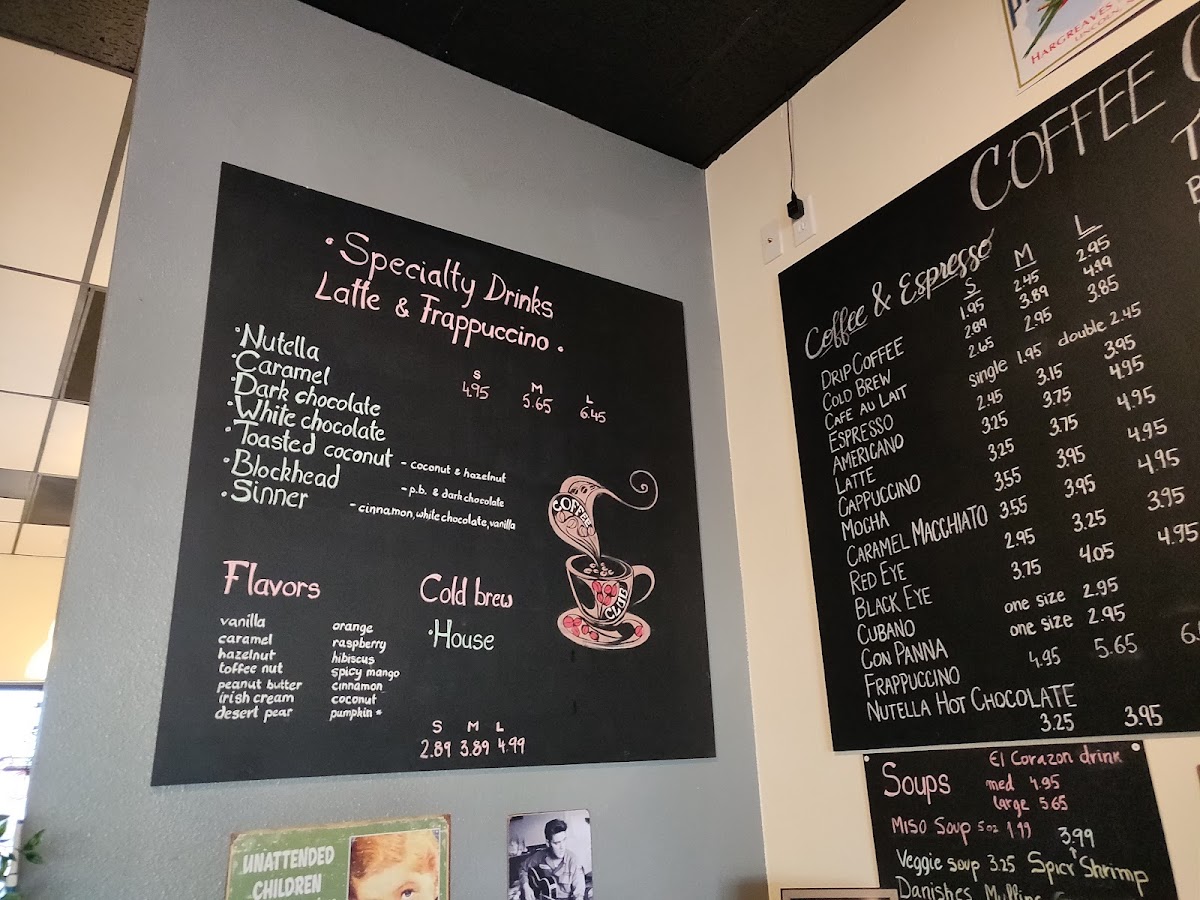 • Specialty Drinks
Latte & Frappuccino •
S M L
4.95 5.65 6.45
• Nutella
• Caramel
• Dark chocolate
• White chocolate
• Toasted coconut - coconut & hazelnut
• Blockhead - p.b. & dark chocolate
• Sinner - cinnamon, white chocolate, vanilla
COFFEE
CLUB
Flavors
vanilla
caramel
hazelnut
toffee nut
peanut butter
irish cream
desert pear
orange
raspberry
hibiscus
spicy mango
cinnamon
coconut
pumpkin *
Cold brew
• House
S M L
2.89 3.89 4.99
UNATTENDED
CHILDREN
HARGREAVES
LINCOLN
COFFEE
Coffee & Espresso
S M L
DRIP COFFEE 1.95 2.45 2.95
COLD BREW 2.89 3.89 4.99
CAFE AU LAIT 2.65 2.95 3.85
ESPRESSO single 1.95 double 2.45
AMERICANO 2.45 3.15 3.95
LATTE 3.25 3.75 4.95
CAPPUCCINO 3.25 3.75 4.95
MOCHA 3.55 3.95 4.95
CARAMEL MACCHIATO 3.55 3.95 4.95
RED EYE 2.95 3.25 3.95
BLACK EYE 3.75 4.05 4.95
CUBANO one size 2.95
CON PANNA one size 2.95
FRAPPUCCINO 4.95 5.65
NUTELLA HOT CHOCOLATE
3.25 3.95
Soups
El Corazon drink
med 4.95
large 5.65
Miso Soup 5oz 1.99
3.99
Veggie soup 3.25 Spicy Shrimp
Danishes Muffins